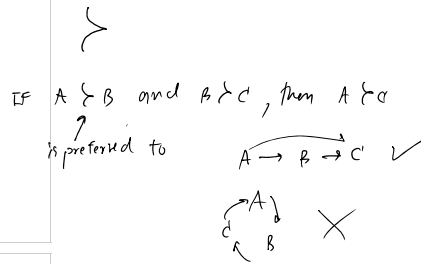 ≻
IF A ≻ B and B ≻ C, then A ≻ C
is preferred to
A → B → C ✓
A
C B ✗